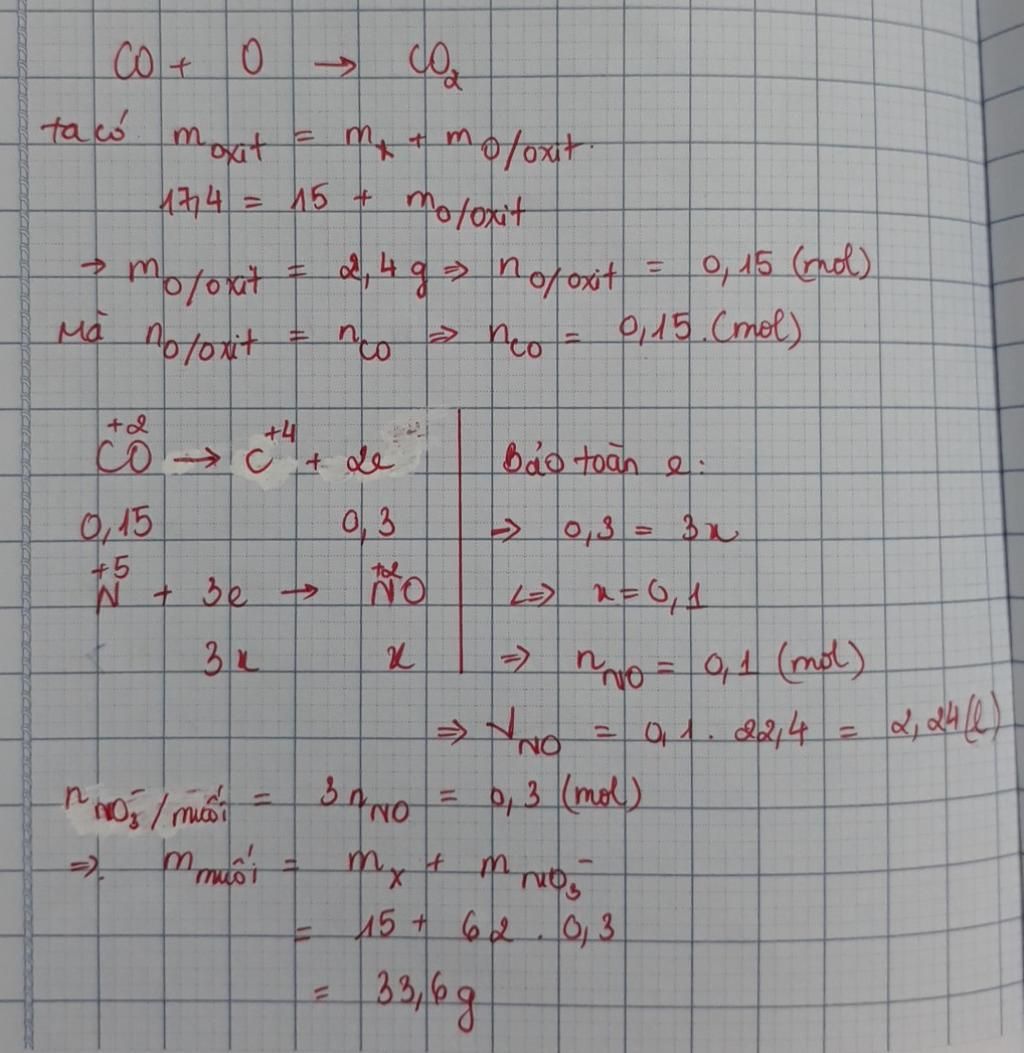 CO + O → CO₂
ta có m_oxit = m_x + m_O/oxit.
17,4 = 15 + m_O/oxit
→ m_O/oxit = 2,4 g ⇒ n_O/oxit = 0,15 (mol)
Mà n_O/oxit = n_CO ⇒ n_CO = 0,15.(mol)
+2 +4
CO → C + 2e
Bảo toàn e:
0,15 0,3
⇒ 0,3 = 3x
+5 +2
N + 3e → NO
<=> x = 0,1
3x x
⇒ n_NO = 0,1 (mol)
⇒ V_NO = 0,1 . 22,4 = 2,24(l)
n_NO₃⁻/muối = 3n_NO = 0,3 (mol)
⇒. m_muối = m_x + m_NO₃⁻
= 15 + 62 . 0,3
= 33,6g